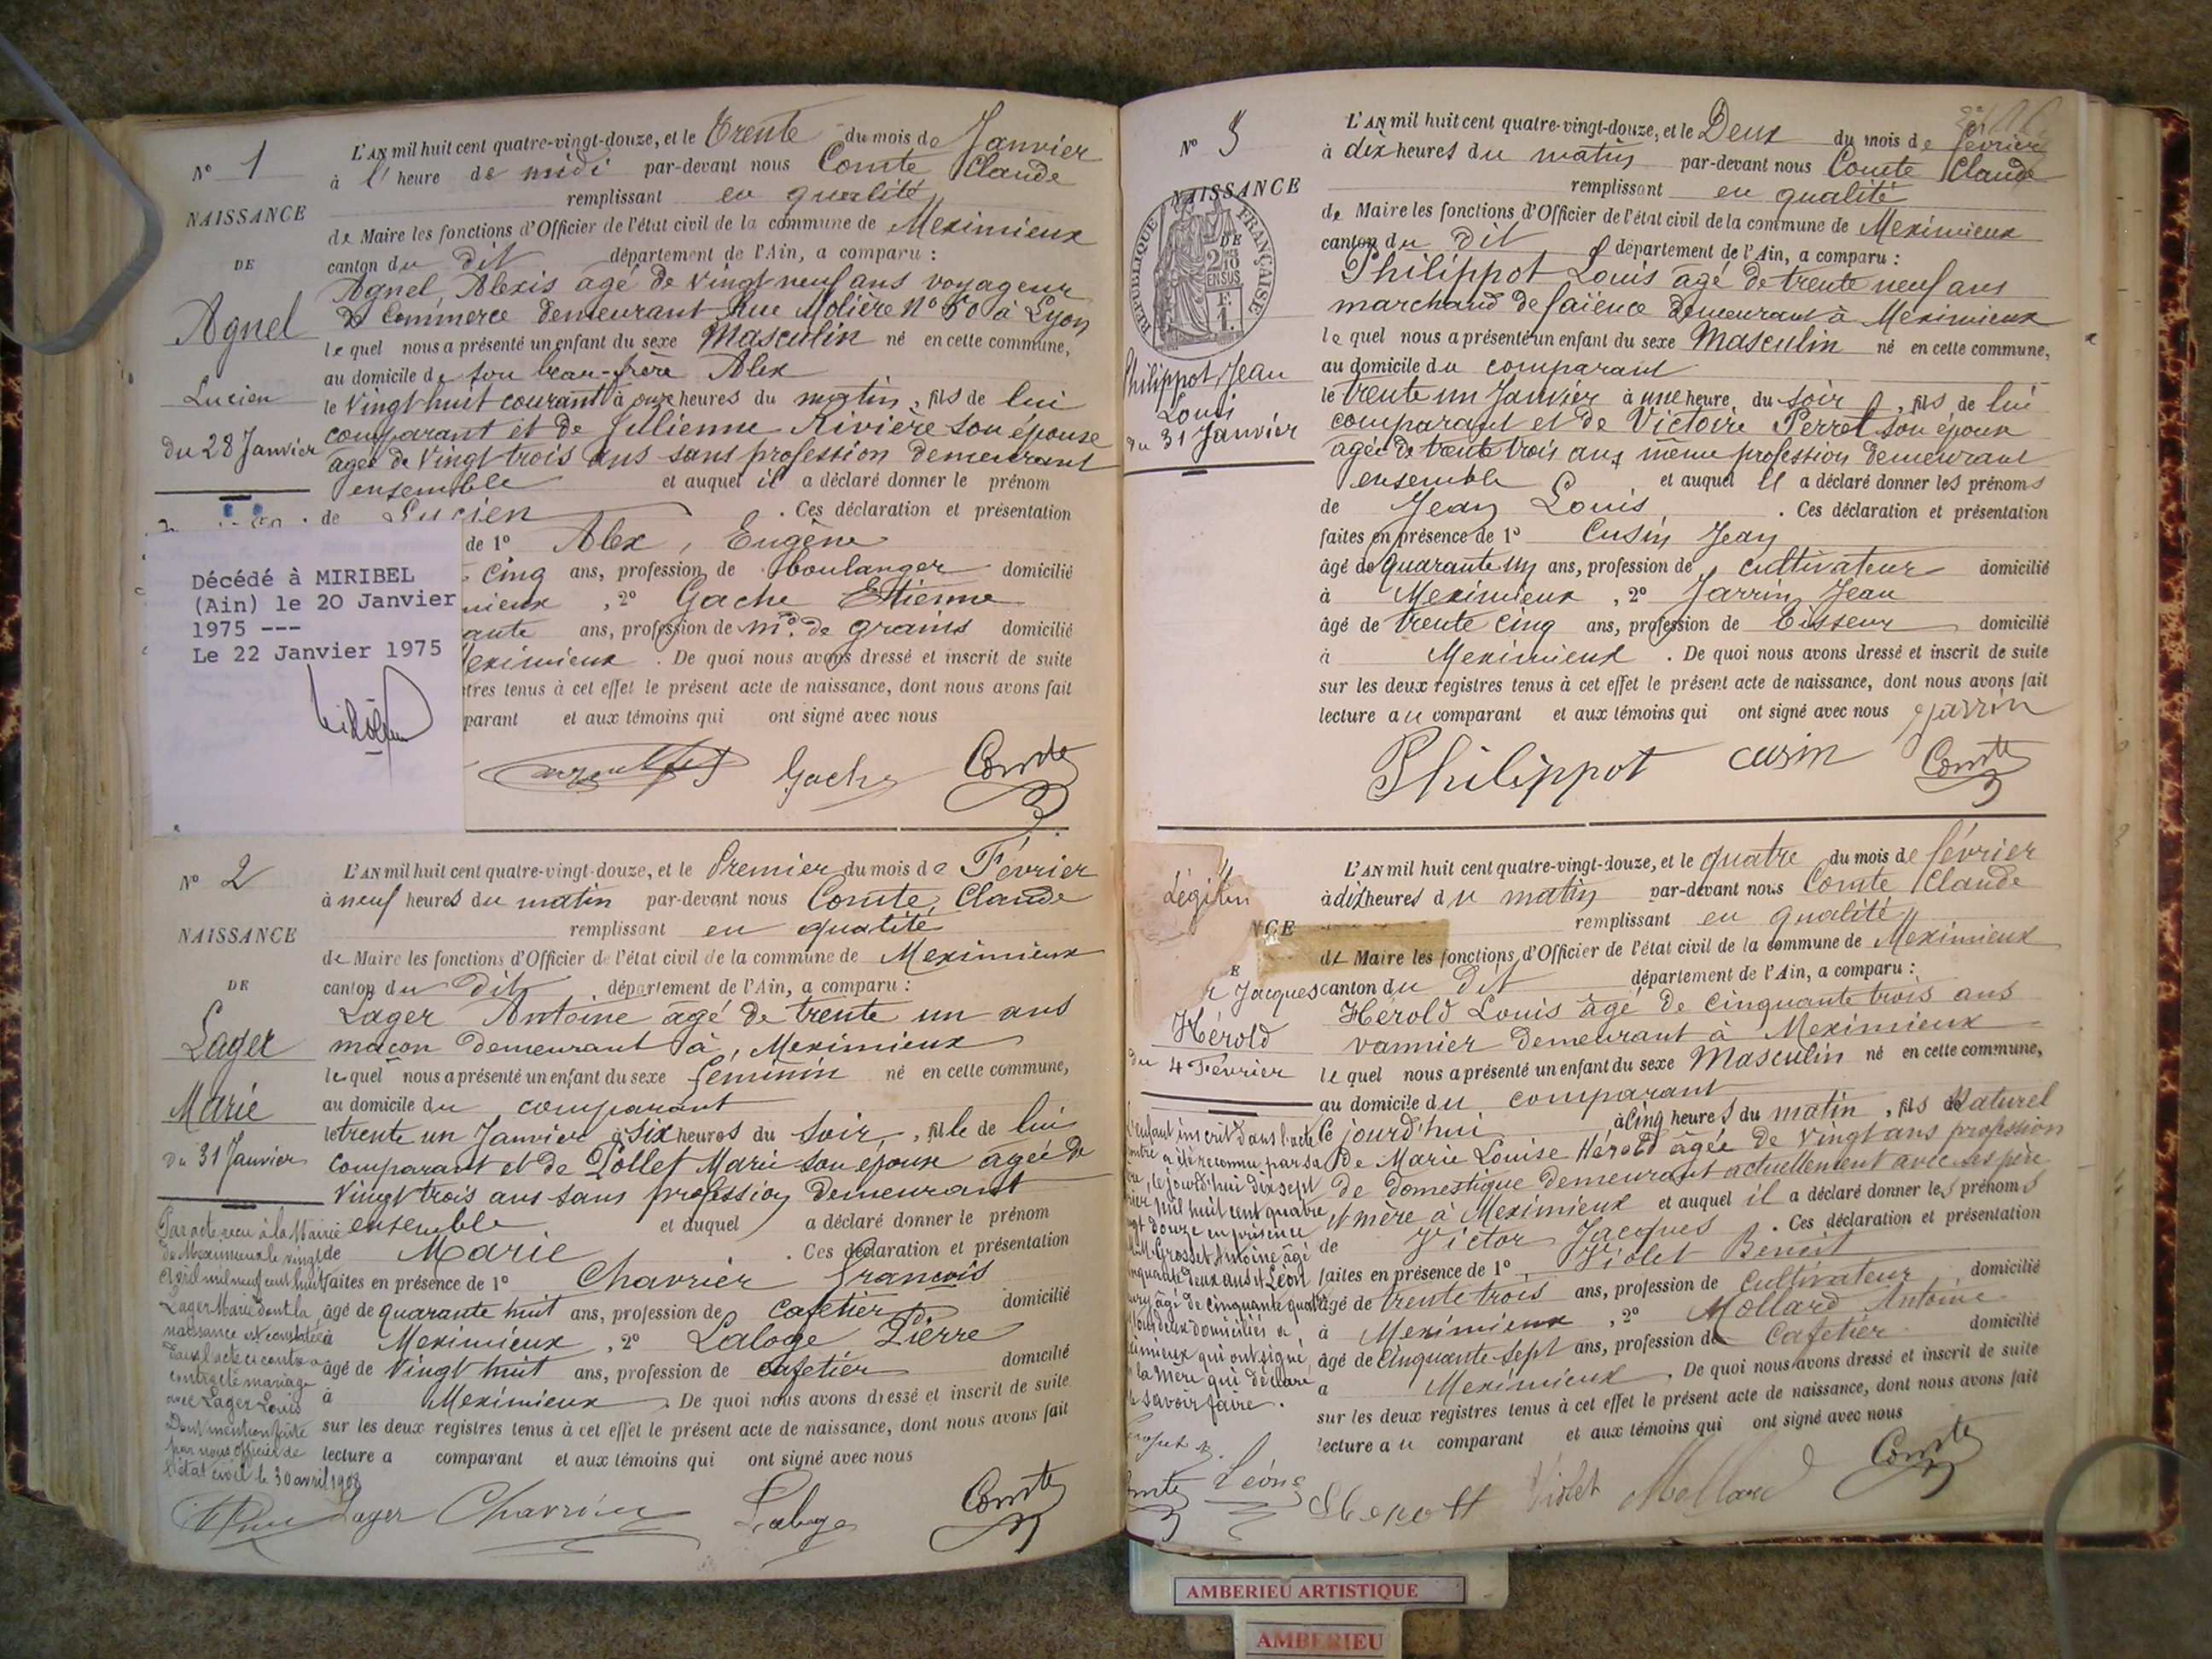 N° 1
NAISSANCE
DE
Agnel
Lucien
du 28 Janvier
L'AN mil huit cent quatre-vingt-douze, et le Trente du mois de Janvier
à l'heure de midi par-devant nous Comte Claude
remplissant en qualité
de Maire les fonctions d'Officier de l'état civil de la commune de Meximieux
canton du dit département de l'Ain, a comparu :
Agnel Alexis agé de vingt neuf ans voyageur
de Commerce demeurant Rue Molière N° 60 à Lyon
lequel nous a présenté un enfant du sexe Masculin né en cette commune,
au domicile de son beau-frère Alex
le vingt huit courant à onze heures du matin, fils de lui
comparant et de Julienne Rivière son épouse
agée de vingt trois ans sans profession demeurant
ensemble et auquel il a déclaré donner le prénom
de Lucien . Ces déclaration et présentation
de 1° Alex, Eugène
cinq ans, profession de boulanger domicilié
mieux , 2° Gache Etienne
ante ans, profession de md de grains domicilié
eximieux . De quoi nous avons dressé et inscrit de suite
tres tenus à cet effet le présent acte de naissance, dont nous avons fait
parant et aux témoins qui ont signé avec nous
Décédé à MIRIBEL
(Ain) le 20 Janvier
1975 ---
Le 22 Janvier 1975
Gache Comte
N° 2
NAISSANCE
DE
Lager
Marie
du 31 Janvier
L'AN mil huit cent quatre-vingt-douze, et le Premier du mois de Février
à neuf heures du matin par-devant nous Comte Claude
remplissant en qualité
de Maire les fonctions d'Officier de l'état civil de la commune de Meximieux
canton du dit département de l'Ain, a comparu :
Lager Antoine âgé de trente un ans
maçon demeurant à Meximieux
lequel nous a présenté un enfant du sexe féminin né en cette commune,
au domicile du comparant
le trente un Janvier à six heures du soir, fille de lui
comparant et de Pollet Marie son épouse agée de
vingt trois ans sans profession demeurant
ensemble et auquel a déclaré donner le prénom
de Marie . Ces déclaration et présentation
faites en présence de 1° Chavrier françois
âgé de quarante huit ans, profession de cafetier domicilié
à Meximieux , 2° Laloge Pierre
âgé de vingt huit ans, profession de cafetier domicilié
à Meximieux . De quoi nous avons dressé et inscrit de suite
sur les deux registres tenus à cet effet le présent acte de naissance, dont nous avons fait
lecture a comparant et aux témoins qui ont signé avec nous
Par acte reçu à la Mairie
de Meximieux le vingt
avril mil neuf cent huit
Lager Marie dont la
naissance est constatée
dans l'acte ci contre a
contracté mariage
avec Lager Louis
Dont mention faite
par nous officier de
l'état civil le 30 avril 1908
Lager Chavrier Laloge Comte
N° 3
NAISSANCE
DE
REPUBLIQUE FRANÇAISE
2/10 EN SUS
F. 1.
Philippot Jean
Louis
du 31 Janvier
L'AN mil huit cent quatre-vingt-douze, et le Deux du mois de février
à dix heures du matin par-devant nous Comte Claude
remplissant en qualité
de Maire les fonctions d'Officier de l'état civil de la commune de Meximieux
canton du dit département de l'Ain, a comparu :
Philippot Louis âgé de trente neuf ans
marchand de faïence demeurant à Meximieux
lequel nous a présenté un enfant du sexe Masculin né en cette commune,
au domicile du comparant
le trente un Janvier à une heure du soir, fils de lui
comparant et de Victoire Perret son épouse
agée de trente trois ans même profession demeurant
ensemble et auquel il a déclaré donner les prénoms
de Jean Louis . Ces déclaration et présentation
faites en présence de 1° Cusin Jean
âgé de quarante un ans, profession de cultivateur domicilié
à Meximieux , 2° Jarrin Jean
âgé de trente cinq ans, profession de tisseur domicilié
à Meximieux . De quoi nous avons dressé et inscrit de suite
sur les deux registres tenus à cet effet le présent acte de naissance, dont nous avons fait
lecture au comparant et aux témoins qui ont signé avec nous Jarrin
Philippot cusin Comte
Légitim
NCE
E
Jacques
Hérold
du 4 Février
L'AN mil huit cent quatre-vingt-douze, et le quatre du mois de février
à dix heures du matin par-devant nous Comte Claude
remplissant en qualité
de Maire les fonctions d'Officier de l'état civil de la commune de Meximieux
canton du dit département de l'Ain, a comparu :
Hérold Louis âgé de cinquante trois ans
vannier demeurant à Meximieux
lequel nous a présenté un enfant du sexe Masculin né en cette commune,
au domicile du comparant
ce jourd'hui à cinq heures du matin, fils Naturel
de Marie Louise Hérold âgée de vingt ans profession
de domestique demeurant actuellement avec ses père
et mère à Meximieux et auquel il a déclaré donner les prénoms
de Victor Jacques . Ces déclaration et présentation
faites en présence de 1° Violet Benoit
âgé de trente trois ans, profession de cultivateur domicilié
à Meximieux , 2° Mollard Antoine
âgé de cinquante sept ans, profession de cafetier domicilié
a Meximieux . De quoi nous avons dressé et inscrit de suite
sur les deux registres tenus à cet effet le présent acte de naissance, dont nous avons fait
lecture au comparant et aux témoins qui ont signé avec nous
l'enfant inscrit dans l'acte
contre a été reconnu par sa
le jourd'hui dix sept
mil huit cent quatre
douze en présence
M. Grosset Antoine âgé
deux ans et Léon
âgé de cinquante quatre
tous deux domiciliés à
qui ont signé
la mère qui déclare
le savoir faire.
Léon
Violet Mollard Comte
AMBERIEU ARTISTIQUE
AMBERIEU